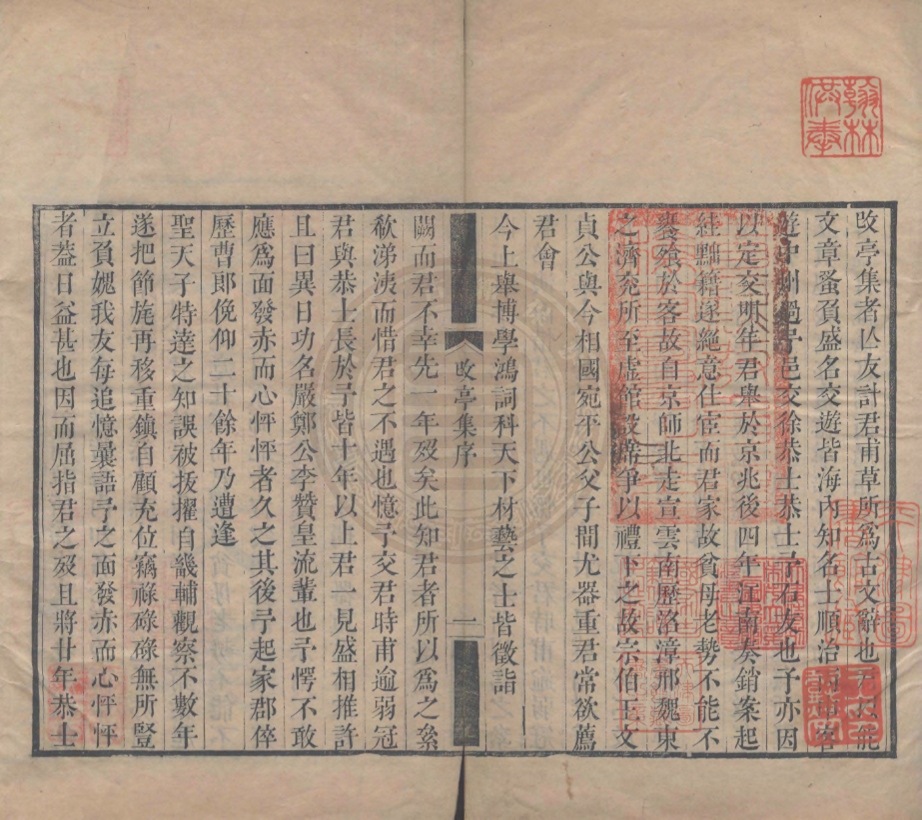 改亭集者亾友計君甫草所為古文辭也君才能
文章蚤負盛名交遊皆海內知名士順治
遊中州過予邑交徐恭士恭士予君友也予亦因
以定交明年君舉於京兆後四年江南奏銷案起
絓黜籍遂絕意仕宦而君家故貧母老勢不能不
饔飱於客故自京師北走宣雲南歷洛漳邢魏東
之濟兖所至虛館設席爭以禮下之故宗伯王文
貞公與今相國宛平公父子間尤器重君常欲薦
君會
今上舉博學鴻詞科天下材藝之士皆徵詣
改亭集序
一
闕而君不幸先一年歿矣此知君者所以為之絫
欷涕洟而惜君之不遇也憶予交君時甫逾弱冠
君與恭士長於予皆十年以上君一見盛相推許
且曰異日功名嚴鄭公李贊皇流輩也予愕不敢
應為面發赤而心怦怦者久之其後予起家郡倅
歷曹郎俛仰二十餘年乃遭逢
聖天子特達之知誤被拔擢自畿輔觀察不數年
遂把節旄再移重鎮自顧充位竊祿碌碌無所豎
立負媿我友每追憶曩語予之面發赤而心怦怦
者葢日益甚也因而屈指君之歿且將廿年恭士
翰林